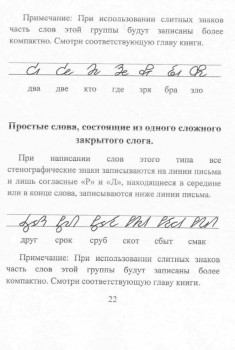 Примечание: При использовании слитных знаков
часть слов этой группы будут записаны более
компактно. Смотри соответствующую главу книги.
два две кто где зря бра зло
Простые слова, состоящие из одного сложного
закрытого слога.
При написании слов этого типа все
стенографические знаки записываются на линии письма
и лишь согласные «Р» и «Л», находящиеся в середине
или в конце слова, записываются ниже линии письма.
друг срок сруб скот сбыт смак
Примечание: При использовании слитных знаков
часть слов этой группы будут записаны более
компактно. Смотри соответствующую главу книги.
22